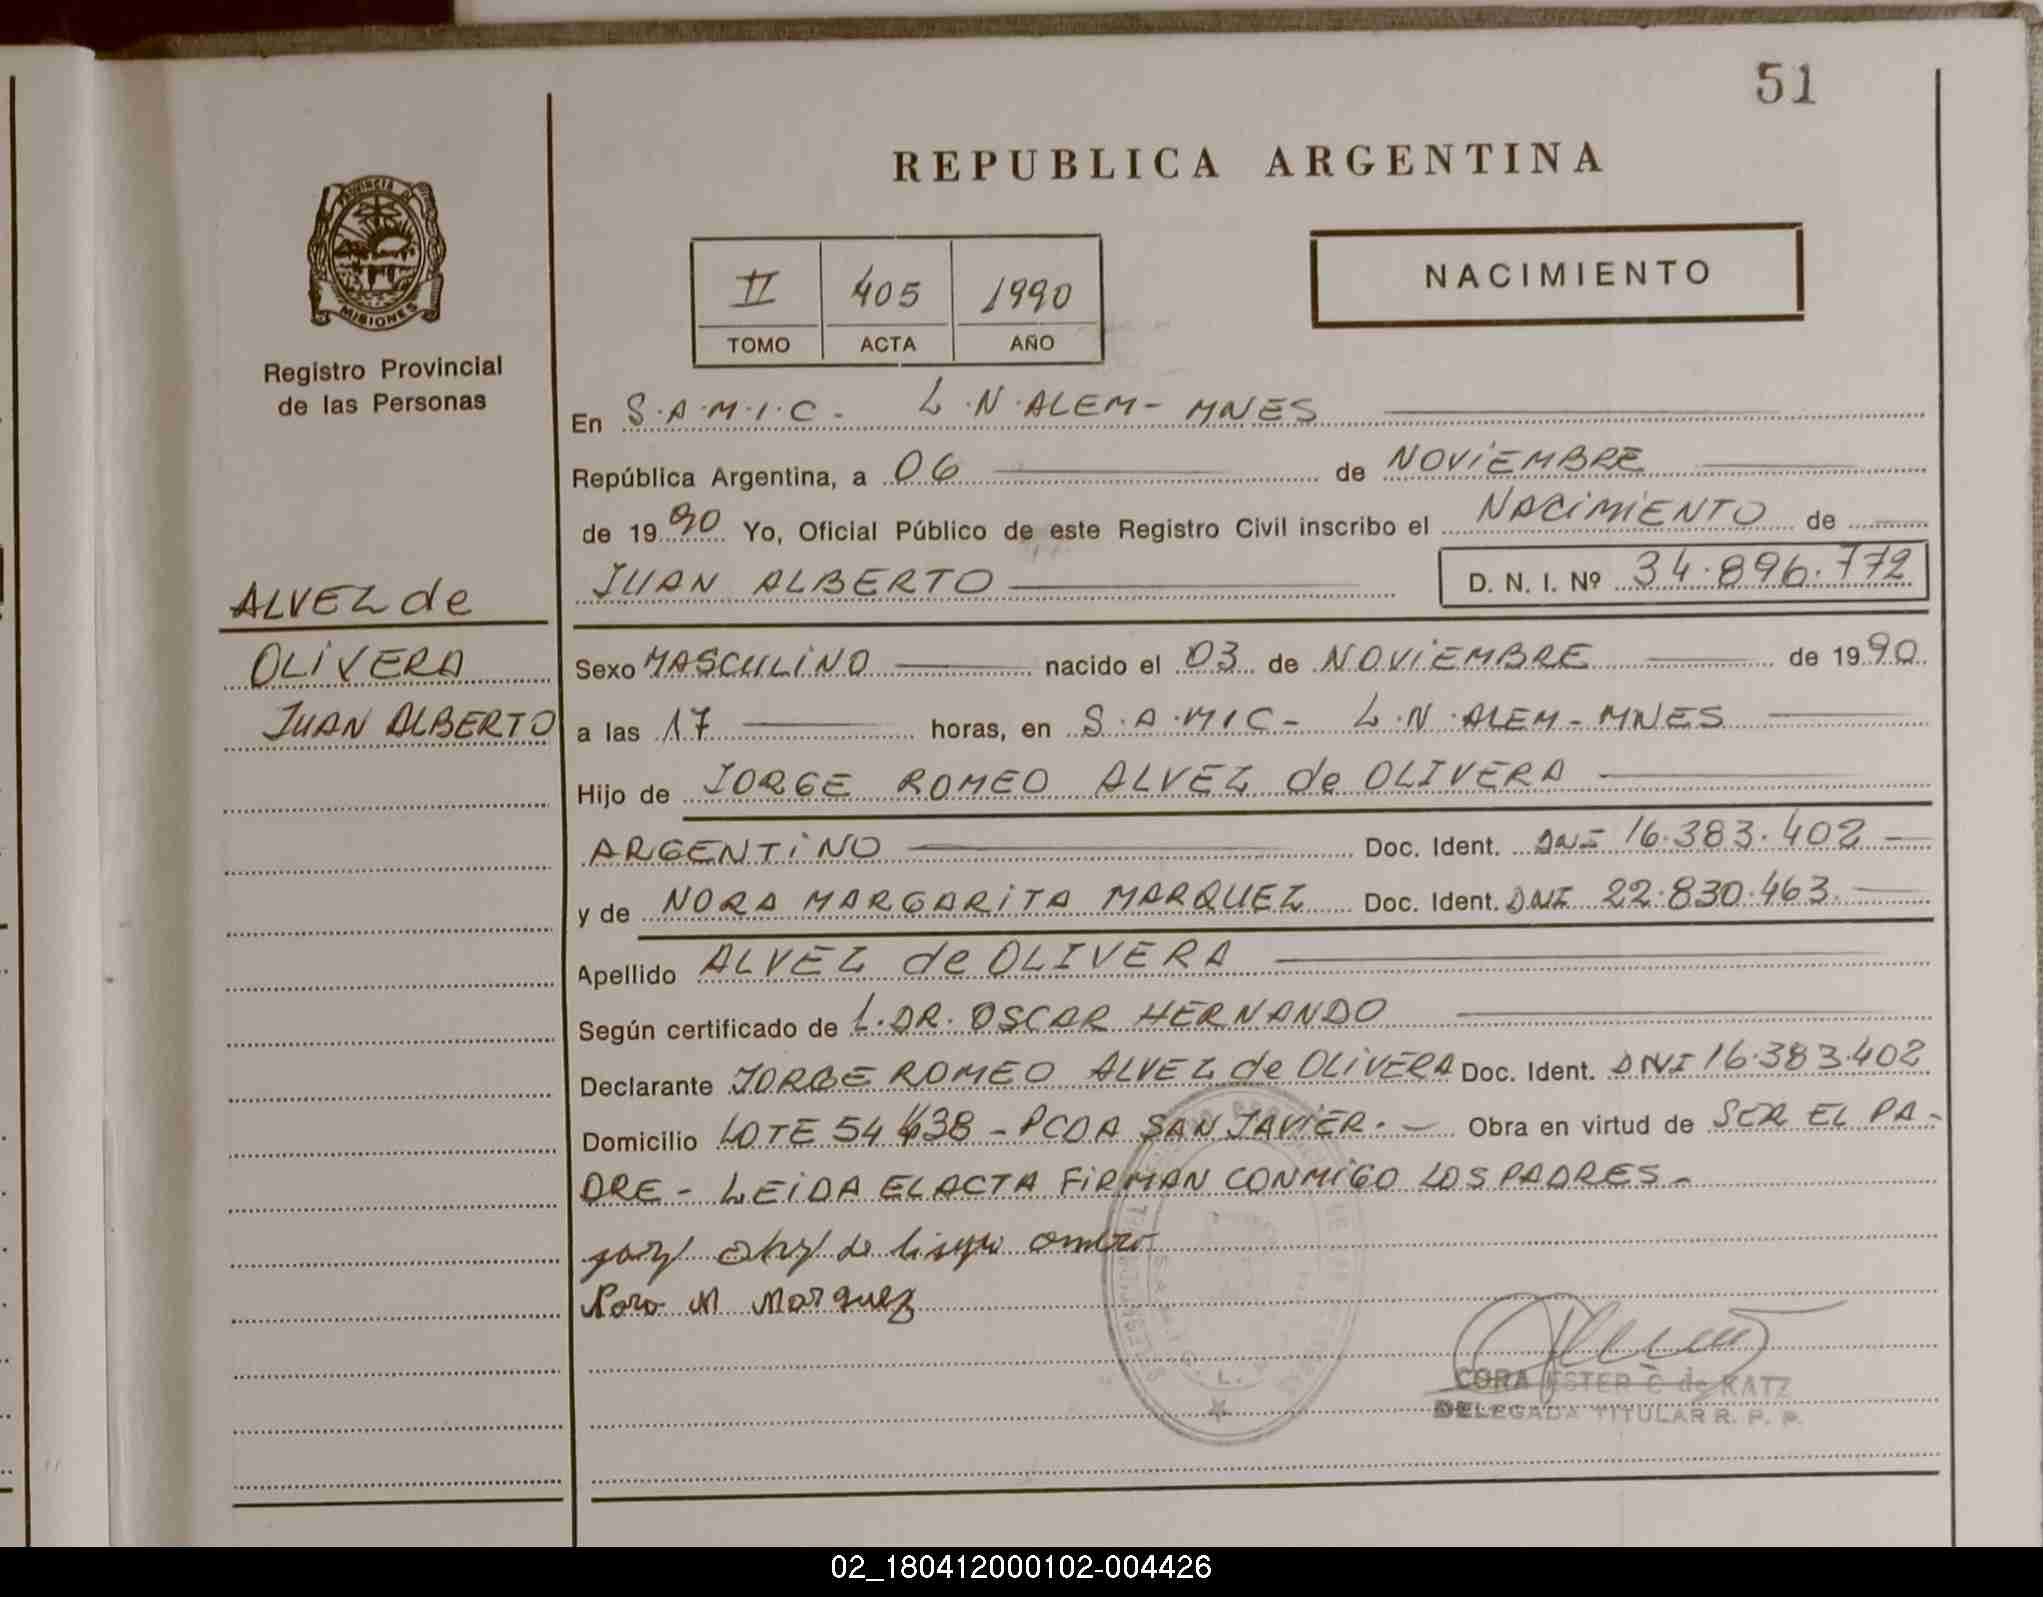 51
REPUBLICA ARGENTINA
PROVINCIA DE
MISIONES
Registro Provincial
de las Personas
II 405 1990
TOMO ACTA AÑO
NACIMIENTO
En S.A.M.I.C - L.N.ALEM - MNES
República Argentina, a 06 de NOVIEMBRE
de 1990 Yo, Oficial Público de este Registro Civil inscribo el NACIMIENTO de
JUAN ALBERTO D. N. I. Nº 34.896.772
ALVEZ de
OLIVERA
JUAN ALBERTO
Sexo MASCULINO nacido el 03 de NOVIEMBRE de 1990
a las 17 horas, en S.A.MIC - L.N.ALEM - MNES
Hijo de JORGE ROMEO ALVEZ de OLIVERA
ARGENTINO Doc. Ident. DNI 16.383.402
y de NORA MARGARITA MARQUEZ Doc. Ident. DNI 22.830.463
Apellido ALVEZ de OLIVERA
Según certificado de L.DR. OSCAR HERNANDO
Declarante JORGE ROMEO ALVEZ de OLIVERA Doc. Ident. DNI 16.383.402
Domicilio LOTE 54 438 - PCDA SAN JAVIER. - Obra en virtud de SER EL PA-
DRE - LEIDA EL ACTA FIRMAN CONMIGO LOS PADRES -
Nora M Marquez
CORA ESTER C de KATZ
DELEGADA TITULAR R. P. P.
02_180412000102-004426